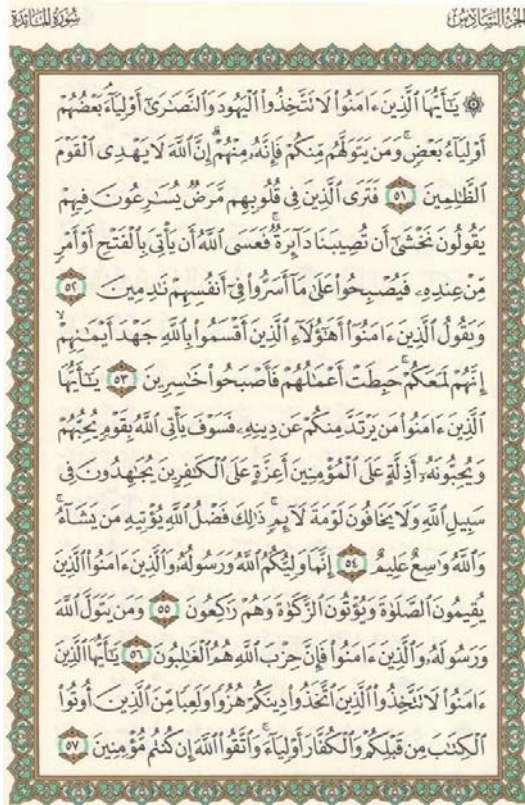 الجزء السادس
سورة المائدة
۞ يَٰٓأَيُّهَا ٱلَّذِينَ ءَامَنُوا۟ لَا تَتَّخِذُوا۟ ٱلْيَهُودَ وَٱلنَّصَٰرَىٰٓ أَوْلِيَآءَ ۘ بَعْضُهُمْ
أَوْلِيَآءُ بَعْضٍ ۚ وَمَن يَتَوَلَّهُم مِّنكُمْ فَإِنَّهُۥ مِنْهُمْ ۗ إِنَّ ٱللَّهَ لَا يَهْدِى ٱلْقَوْمَ
ٱلظَّٰلِمِينَ ٥١ فَتَرَى ٱلَّذِينَ فِى قُلُوبِهِم مَّرَضٌ يُسَٰرِعُونَ فِيهِمْ
يَقُولُونَ نَخْشَىٰٓ أَن تُصِيبَنَا دَآئِرَةٌ ۚ فَعَسَى ٱللَّهُ أَن يَأْتِىَ بِٱلْفَتْحِ أَوْ أَمْرٍ
مِّنْ عِندِهِۦ فَيُصْبِحُوا۟ عَلَىٰ مَآ أَسَرُّوا۟ فِىٓ أَنفُسِهِمْ نَٰدِمِينَ ٥٢
وَيَقُولُ ٱلَّذِينَ ءَامَنُوٓا۟ أَهَٰٓؤُلَآءِ ٱلَّذِينَ أَقْسَمُوا۟ بِٱللَّهِ جَهْدَ أَيْمَٰنِهِمْ ۙ
إِنَّهُمْ لَمَعَكُمْ ۚ حَبِطَتْ أَعْمَٰلُهُمْ فَأَصْبَحُوا۟ خَٰسِرِينَ ٥٣ يَٰٓأَيُّهَا
ٱلَّذِينَ ءَامَنُوا۟ مَن يَرْتَدَّ مِنكُمْ عَن دِينِهِۦ فَسَوْفَ يَأْتِى ٱللَّهُ بِقَوْمٍ يُحِبُّهُمْ
وَيُحِبُّونَهُۥٓ أَذِلَّةٍ عَلَى ٱلْمُؤْمِنِينَ أَعِزَّةٍ عَلَى ٱلْكَٰفِرِينَ يُجَٰهِدُونَ فِى
سَبِيلِ ٱللَّهِ وَلَا يَخَافُونَ لَوْمَةَ لَآئِمٍ ۚ ذَٰلِكَ فَضْلُ ٱللَّهِ يُؤْتِيهِ مَن يَشَآءُ ۚ
وَٱللَّهُ وَٰسِعٌ عَلِيمٌ ٥٤ إِنَّمَا وَلِيُّكُمُ ٱللَّهُ وَرَسُولُهُۥ وَٱلَّذِينَ ءَامَنُوا۟ ٱلَّذِينَ
يُقِيمُونَ ٱلصَّلَوٰةَ وَيُؤْتُونَ ٱلزَّكَوٰةَ وَهُمْ رَٰكِعُونَ ٥٥ وَمَن يَتَوَلَّ ٱللَّهَ
وَرَسُولَهُۥ وَٱلَّذِينَ ءَامَنُوا۟ فَإِنَّ حِزْبَ ٱللَّهِ هُمُ ٱلْغَٰلِبُونَ ٥٦ يَٰٓأَيُّهَا ٱلَّذِينَ
ءَامَنُوا۟ لَا تَتَّخِذُوا۟ ٱلَّذِينَ ٱتَّخَذُوا۟ دِينَكُمْ هُزُوًا وَلَعِبًا مِّنَ ٱلَّذِينَ أُوتُوا۟
ٱلْكِتَٰبَ مِن قَبْلِكُمْ وَٱلْكُفَّارَ أَوْلِيَآءَ ۚ وَٱتَّقُوا۟ ٱللَّهَ إِن كُنتُم مُّؤْمِنِينَ ٥٧